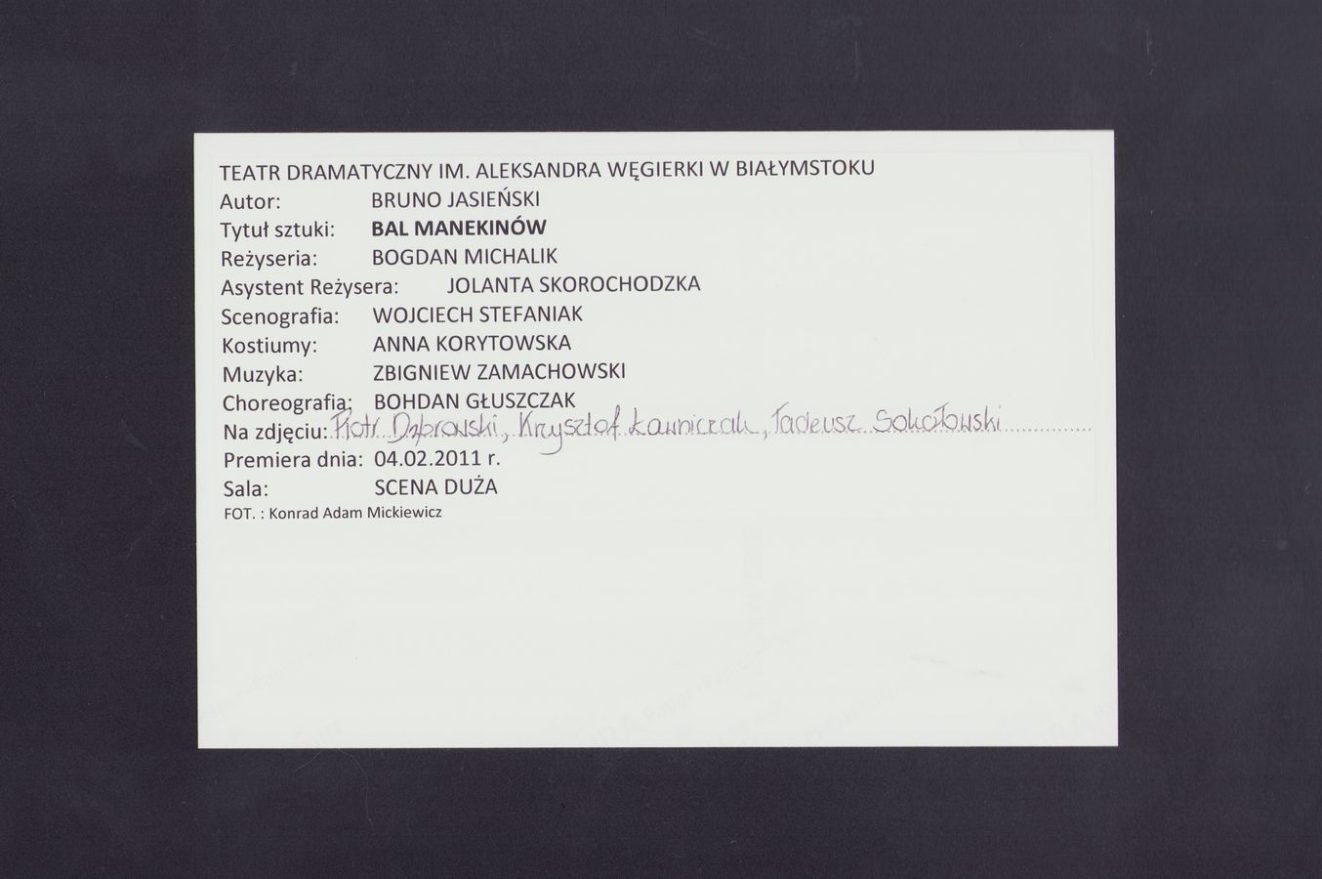 TEATR DRAMATYCZNY IM. ALEKSANDRA WĘGIERKI W BIAŁYMSTOKU
Autor: BRUNO JASIEŃSKI
Tytuł sztuki: BAL MANEKINÓW
Reżyseria: BOGDAN MICHALIK
Asystent Reżysera: JOLANTA SKOROCHODZKA
Scenografia: WOJCIECH STEFANIAK
Kostiumy: ANNA KORYTOWSKA
Muzyka: ZBIGNIEW ZAMACHOWSKI
Choreografia: BOHDAN GŁUSZCZAK
Na zdjęciu: Piotr Dąbrowski, Krzysztof Ławniczak, Tadeusz Sokołowski
Premiera dnia: 04.02.2011 r.
Sala: SCENA DUŻA
FOT. : Konrad Adam Mickiewicz